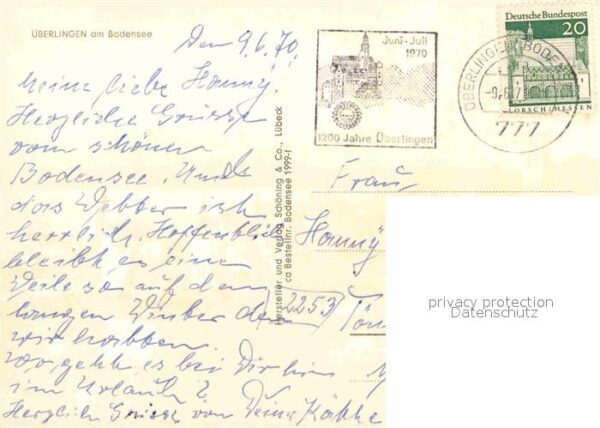 ÜBERLINGEN am Bodensee
Den 9.6.70.
Meine liebe Hanny.
Herzliche Grüsse
vom schönen
Bodensee. Und
das Wetter ist
herrlich. Hoffentlich
bleibt es eine
Weile so auf den
langen Winter den
wir hatten.
Wo geht es bei Dir hin
im Urlaub?
Herzlich Grüsse von Deine Käthe
Hersteller und Verlag Schöning & Co., Lübeck
ca Bestellnr. Bodensee 1999-1
Juni-Juli
1970
1200 Jahre Überlingen
ÜBERLINGEN BODEN
-9.6.7
777
Deutsche Bundespost
20
LORSCH/HESSEN
Frau
Hanny
2253 Tön
privacy protection
Datenschutz